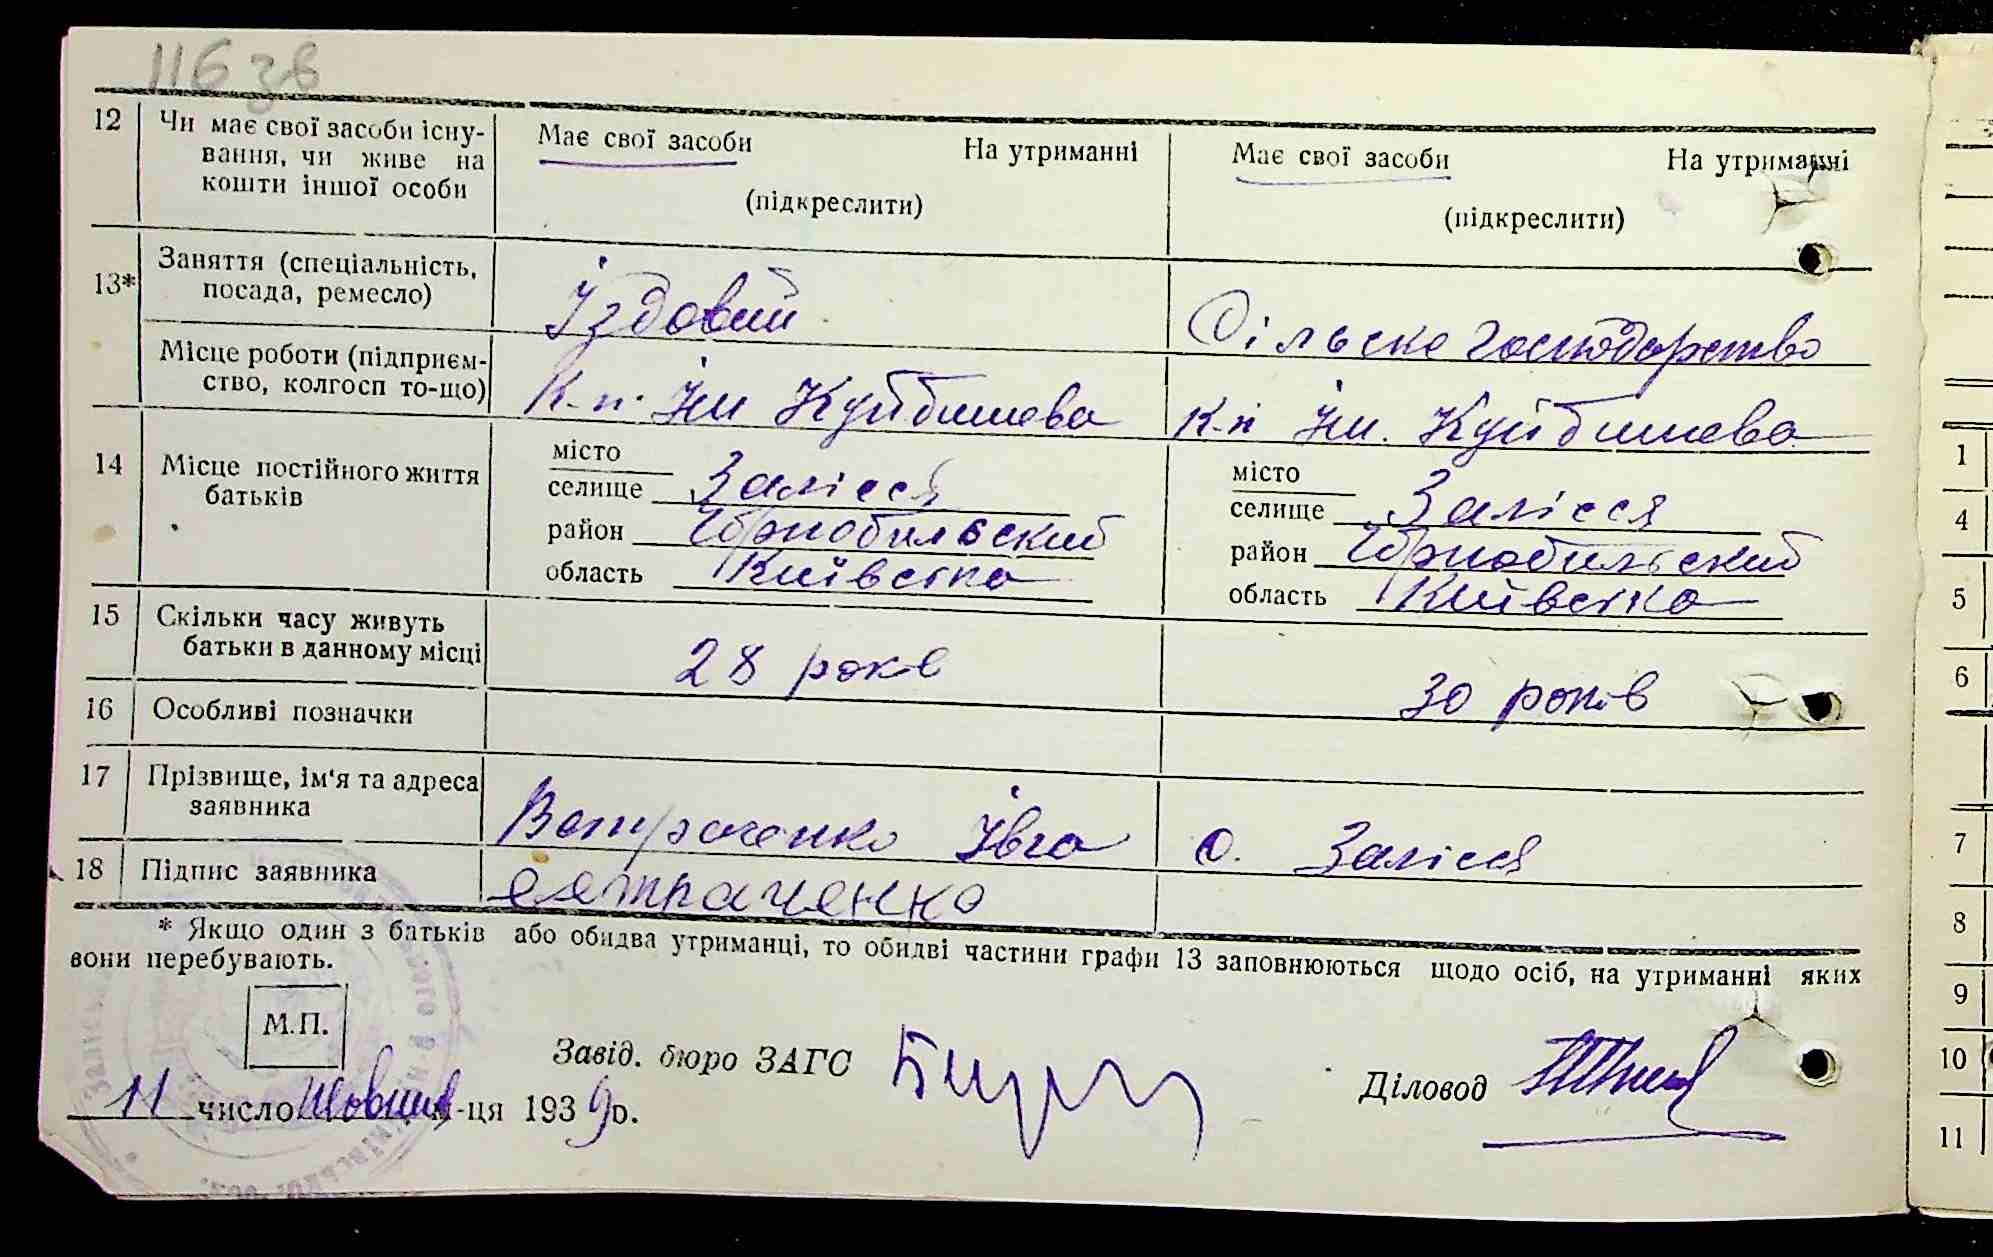 116 зв
12 Чи має свої засоби існу- Має свої засоби На утриманні Має свої засоби На утриманні
вання, чи живе на
кошти іншої особи (підкреслити) (підкреслити)
13* Заняття (спеціальність,
посада, ремесло) Їздовий Сільске господарство
Місце роботи (підприєм-
ство, колгосп то-що) К-п. Ім Куйбишева К-п Ім. Куйбишева
14 Місце постійного життя
батьків
місто місто
селище Залісся селище Залісся
район Чорнобильский район Чорнобильский
область Київська область Київська
15 Скільки часу живуть
батьки в данному місці 28 рокв 30 років
16 Особливі позначки
17 Прізвище, ім'я та адреса
заявника Івга с. Залісся
18 Підпис заявника
* Якщо один з батьків або обидва утриманці, то обидві частини графи 13 заповнюються щодо осіб, на утриманні яких
вони перебувають.
М.П.
Завід. бюро ЗАГС Діловод
11 число Жовтня м-ця 1939 р.
1
4
5
6
7
8
9
10
11